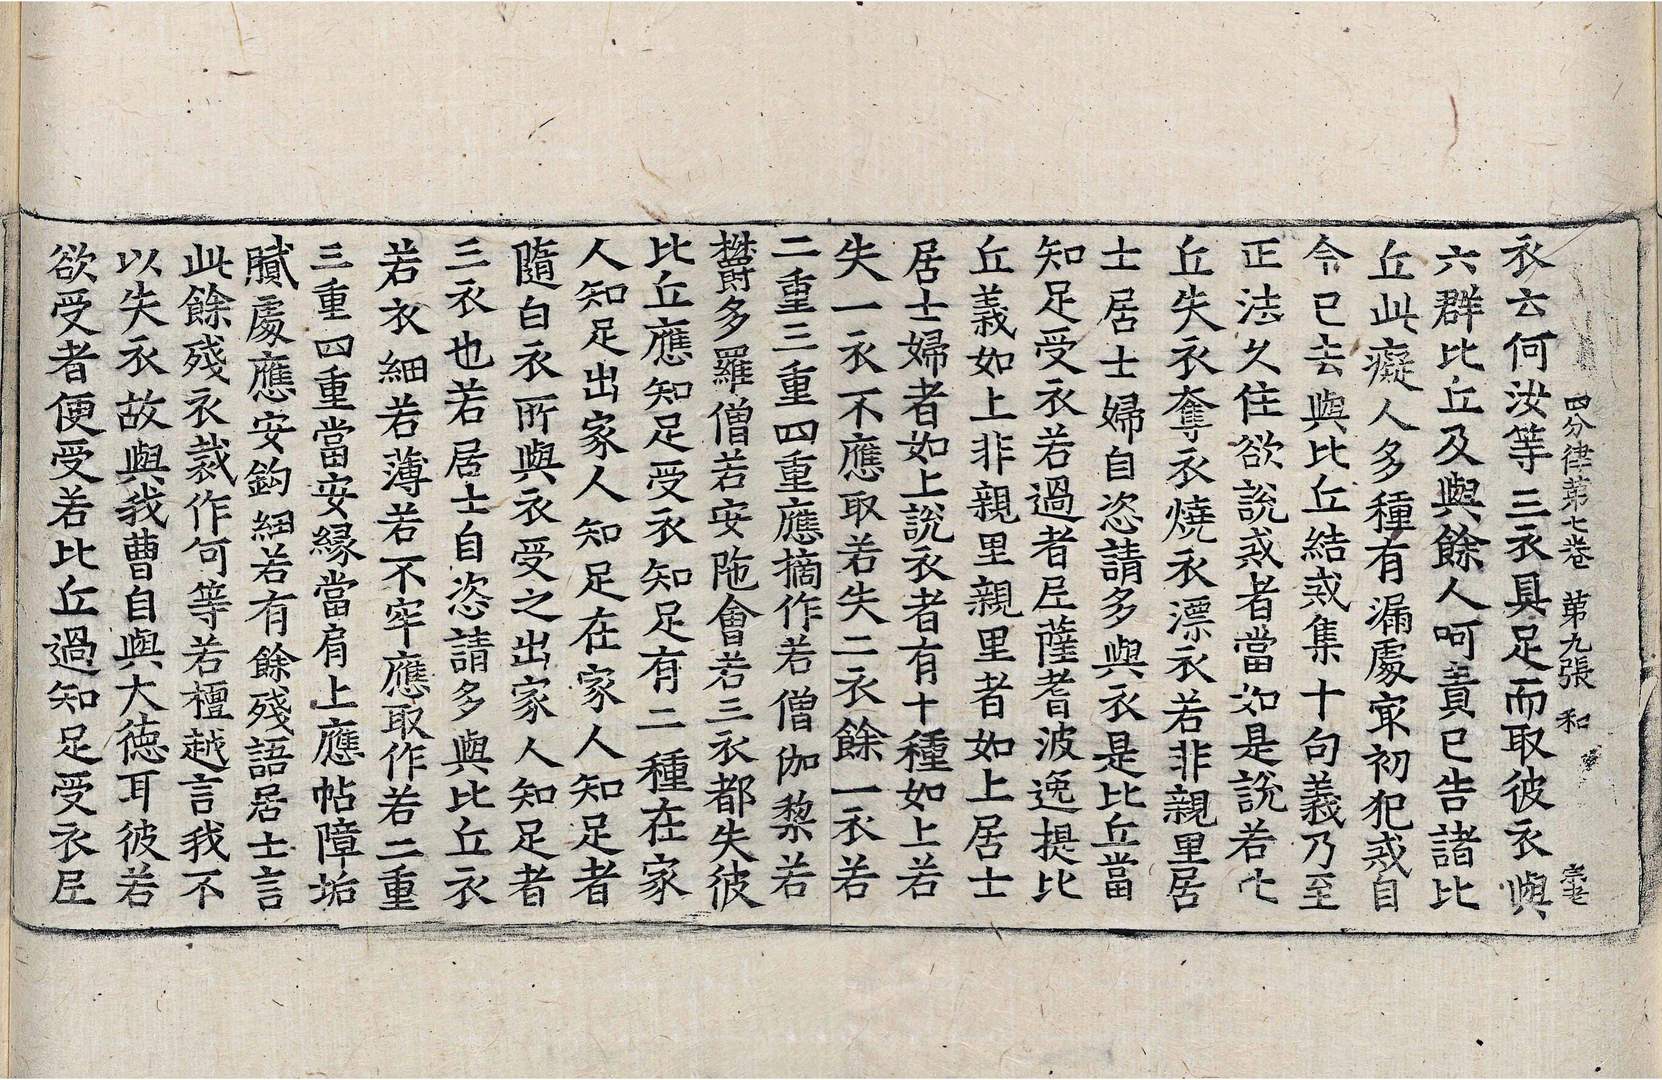 四分律第七卷 第九張 和
衣云何汝等三衣具足而取彼衣與
六群比丘及與餘人呵責已告諸比
丘此癡人多種有漏處冣初犯戒自
今已去與比丘結戒集十句義乃至
正法久住欲說戒者當如是說若比
丘失衣奪衣燒衣漂衣若非親里居
士居士婦自恣請多與衣是比丘當
知足受衣若過者尼薩耆波逸提比
丘義如上非親里親里者如上居士
居士婦者如上說衣者有十種如上若
失一衣不應取若失二衣餘一衣若
二重三重四重應摘作若僧伽梨若
欝多羅僧若安陁會若三衣都失彼
比丘應知足受衣知足有二種在家
人知足出家人知足在家人知足者
隨白衣所與衣受之出家人知足者
三衣也若居士自恣請多與比丘衣
若衣細若薄若不牢應取作若二重
三重四重當安緣當肩上應帖障垢
膩處應安鉤紐若有餘殘語居士言
此餘殘衣裁作何等若檀越言我不
以失衣故與我曹自與大德耳彼若
欲受者便受若比丘過知足受衣尼